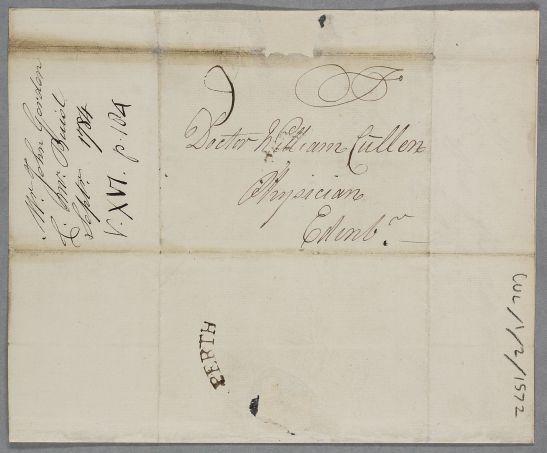 To
Doctor William Cullen
Physician
Edinbr.
Mr. John Gordon
Septr. 1784
V. XVI. p. 104
PERTH
CUL/1/2/1572